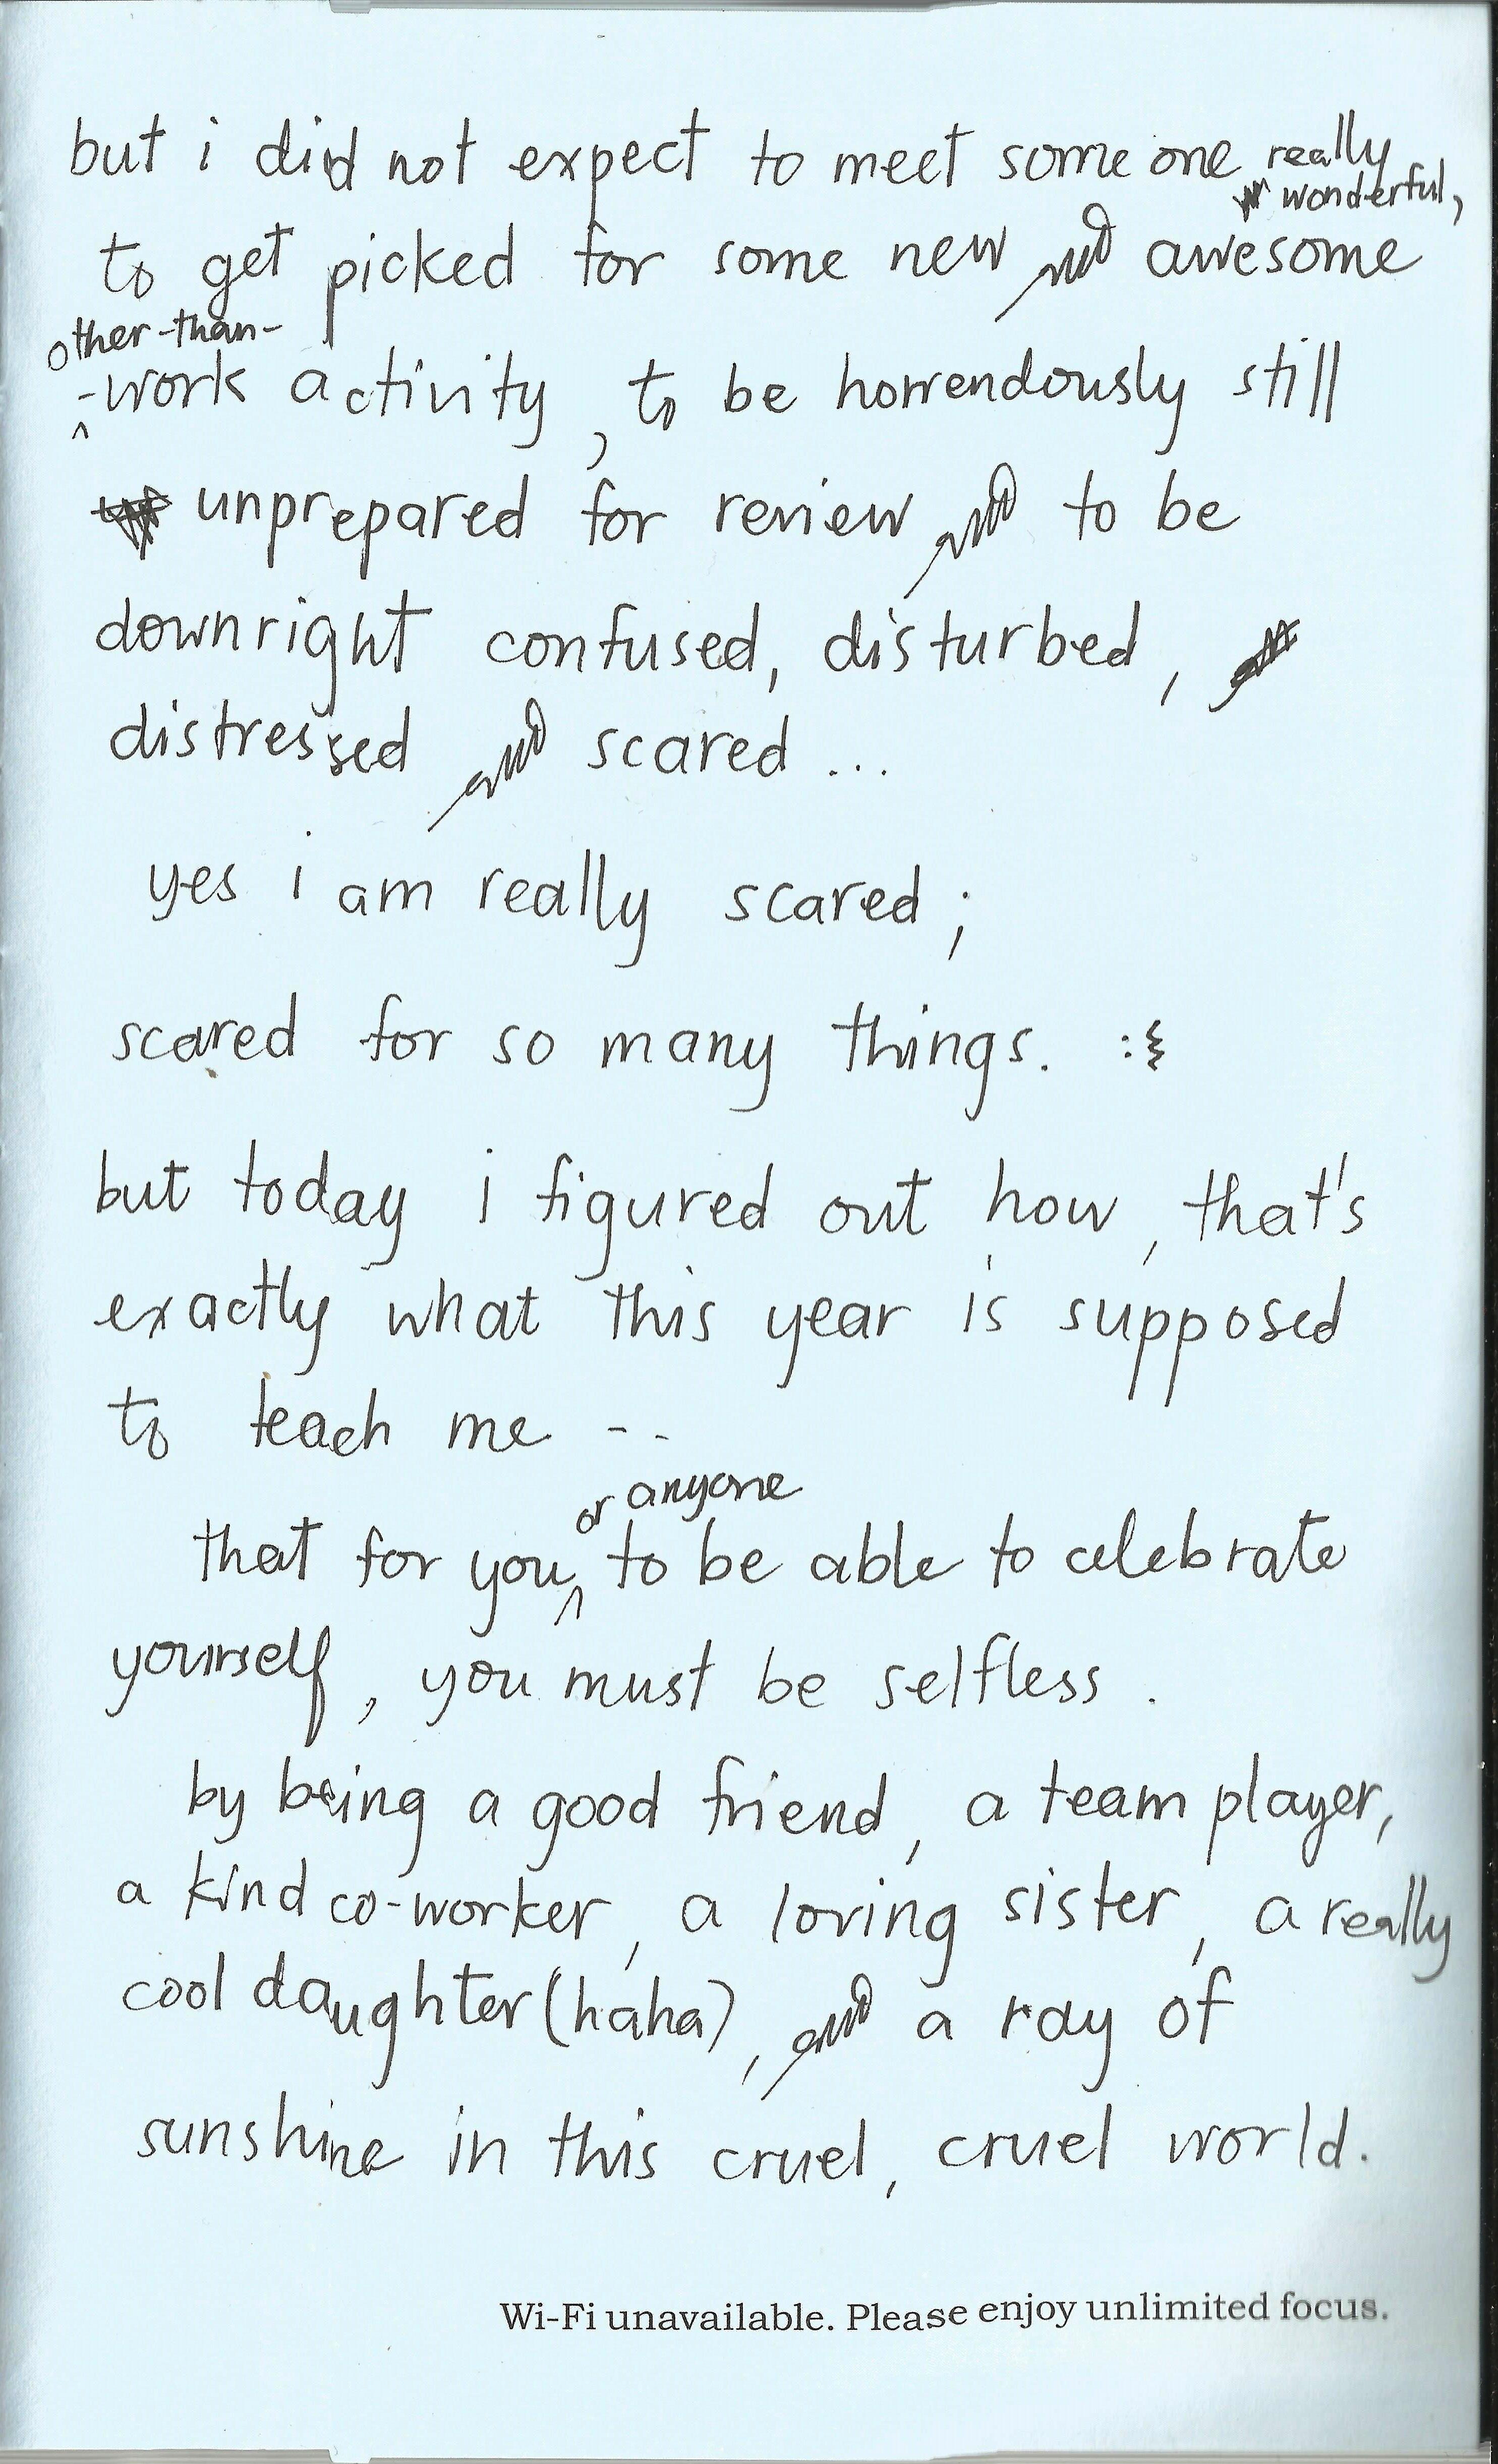 but i did not expect to meet someone really
wonderful,
to get picked for some new and awesome
other-than-
-work activity, to be horrendously still
unprepared for review and to be
downright confused, disturbed,
distressed and scared ...
yes i am really scared;
scared for so many things. :ξ
but today i figured out how, that's
exactly what this year is supposed
to teach me --
or anyone
that for you, to be able to celebrate
yourself, you must be selfless.
by being a good friend, a team player,
a kind co-worker, a loving sister, a really
cool daughter (haha), and a ray of
sunshine in this cruel, cruel world.
Wi-Fi unavailable. Please enjoy unlimited focus.